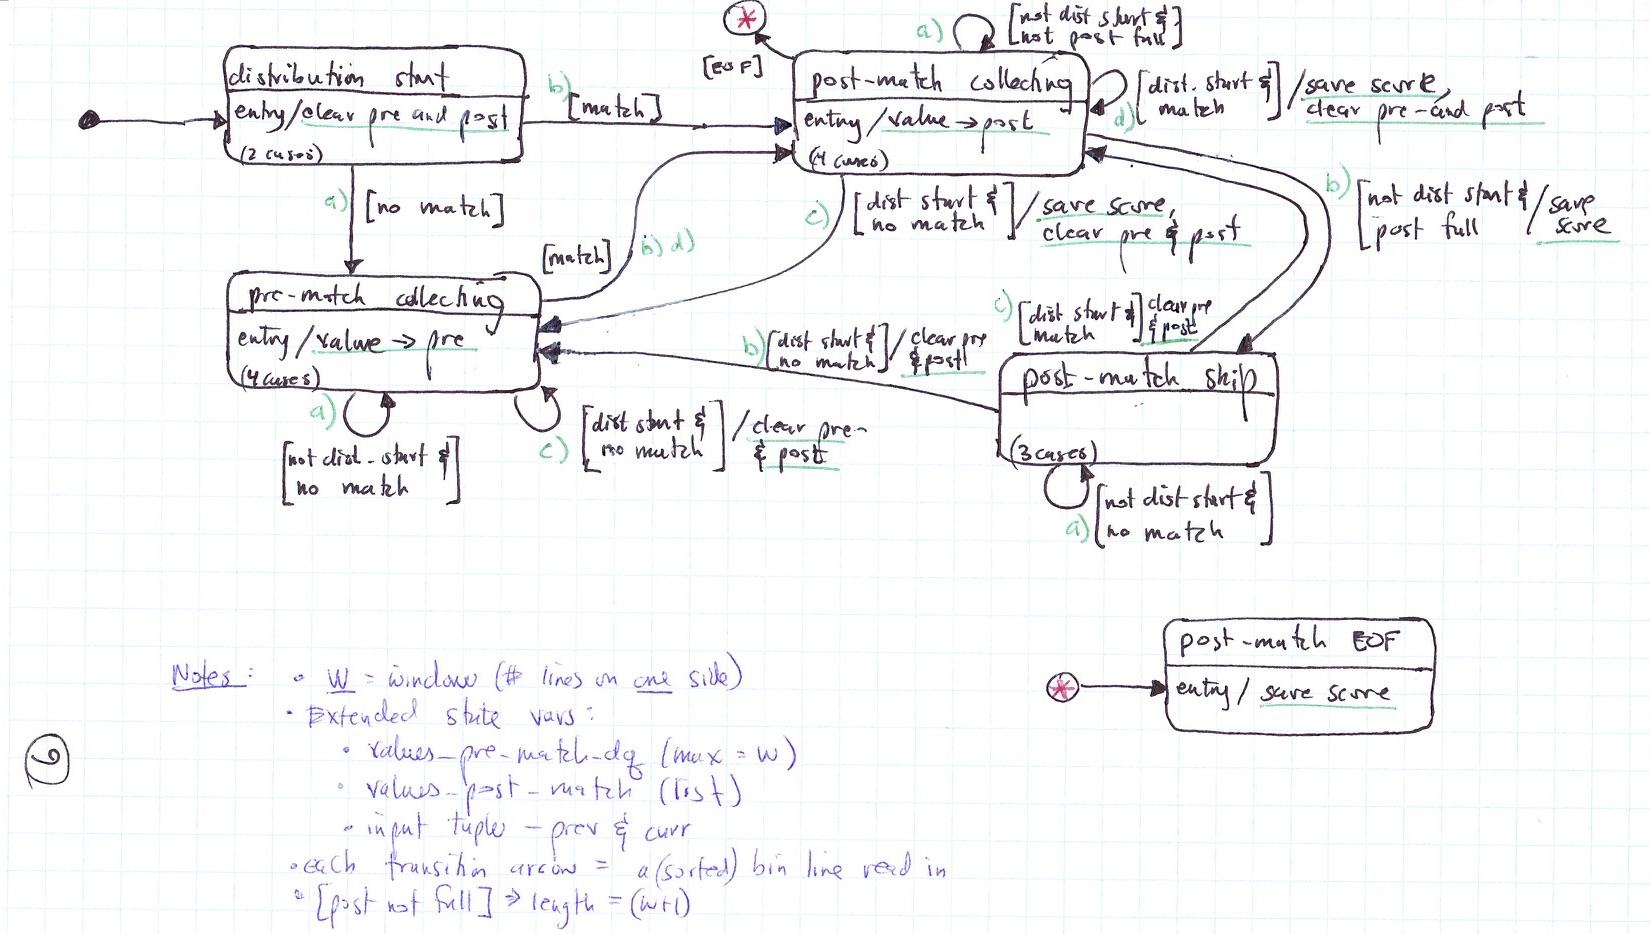 distribution start
entry/clear pre and post
(2 cases)
a) [no match]
b) [match]
[EOF]
*
a) [not dist start &
not post full]
post-match collecting
entry/value → post
(4 cases)
d) [dist. start &
match] /save score,
clear pre-and post
b) [not dist start &
post full] /save
score
c) [dist start &
no match] /save score,
clear pre & post
[match]
b) d)
pre-match collecting
entry/value → pre
(4 cases)
a)
[not dist. start &
no match]
c) [dist start &
no match] /clear pre-
& post
b) [dist start &
no match] /clear pre
& post
c) [dist start &
match] clear pre
& post
post-match skip
(3 cases)
a) [not dist start &
no match]
post-match EOF
entry/ save score
*
Notes:
• W = window (# lines on one side)
• Extended state vars:
• values_pre_match_dq (max = w)
• values_post_match (list)
• input tuple - prev & curr
• each transition arrow = a (sorted) bin line read in
• [post not full] → length = (w+1)